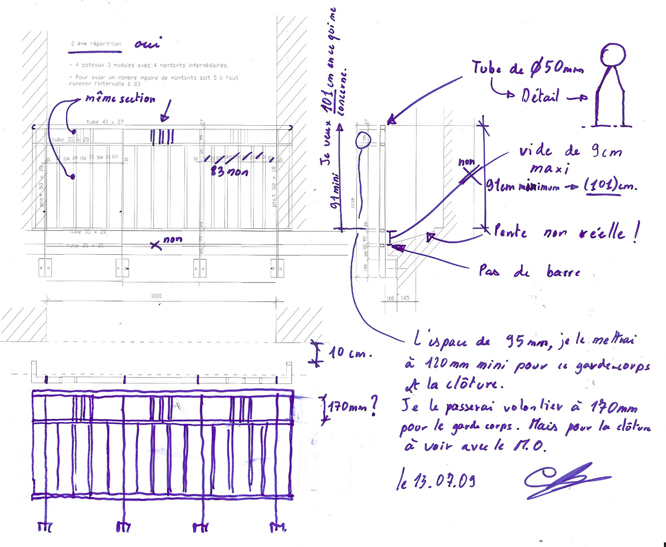 2 ème répartition oui
- 4 poteaux 3 modules avec 4 montants intermédiaires.
- Pour avoir un nombre impaire de montants soit 5 il faut
ramener l'intervalle à 83
même section
tube 41 x 27
tube 33 x 20
83 non
non
1900
Je veux 101 cm en ce qui me
concerne.
91 mini
Tube de Ø 50mm
Détail
vide de 9cm
maxi
non
91cm minimum → (101) cm.
Pente non réelle !
Pas de barre
100
145
L'espace de 95mm, je le mettrai
à 120mm mini pour ce garde-corps
et la clôture.
Je le passerai volontier à 170mm
pour le garde corps. Mais pour la clôture
à voir avec le M.O.
le 13.07.09
10 cm.
170mm ?